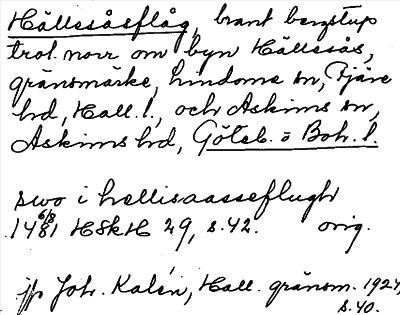 Hällesåsflåg, brant bergstup
trol. norr om byn Hällesås,
gränsmärke, Lindome sn, Fjäre
hd, Hall. l., och Askims sn,
Askims hd, Göteb. o Boh. l.
swo i hellisaasseflugh
6/8
1481 HSkH 29, s. 42. orig.
Joh. Kalén, Hall. gränsm. 1924,
s. 40.